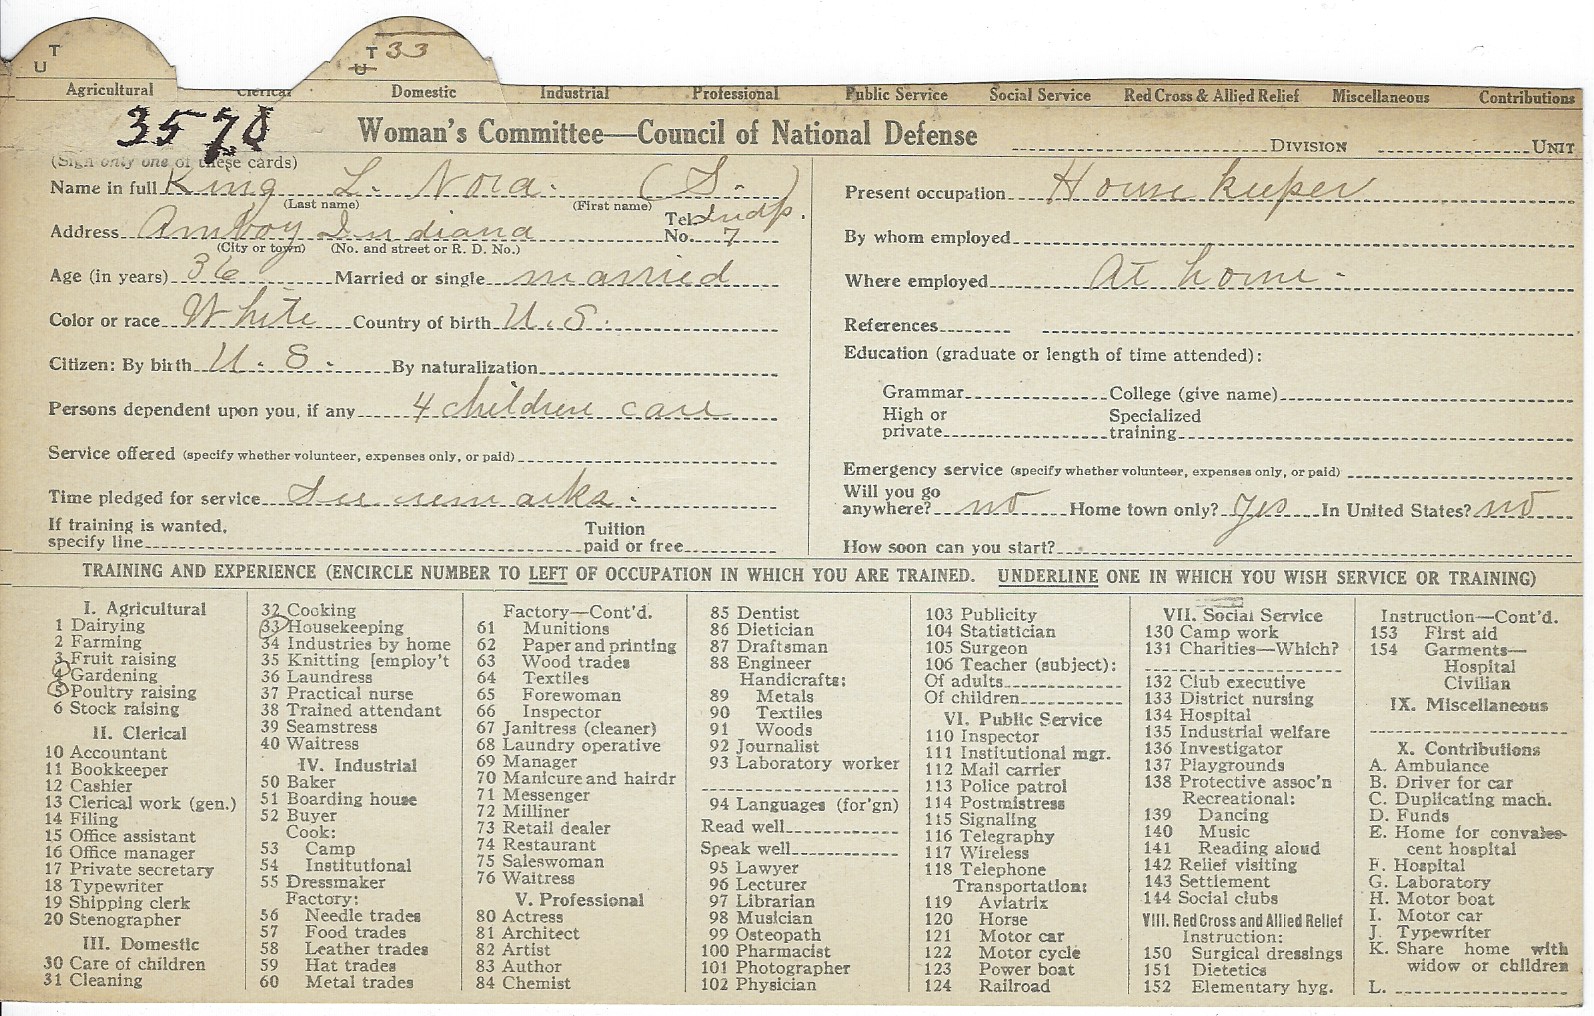 T
U
T 33
U
Agricultural Clerical Domestic Industrial Professional Public Service Social Service Red Cross & Allied Relief Miscellaneous Contributions
3578
Woman's Committee—Council of National Defense DIVISION UNIT
(Sign only one of these cards)
Name in full King L. Nora. (S.)
(Last name) (First name)
Address Amboy Indiana Tel. Indp.
No. 7
(City or town) (No. and street or R. D. No.)
Age (in years) 36 Married or single married
Color or race White Country of birth U.S.
Citizen: By birth U.S. By naturalization
Persons dependent upon you, if any 4 children care
Service offered (specify whether volunteer, expenses only, or paid)
Time pledged for service See remarks.
If training is wanted, specify line Tuition paid or free
Present occupation House keeper
By whom employed
Where employed At home.
References
Education (graduate or length of time attended):
Grammar College (give name)
High or private Specialized training
Emergency service (specify whether volunteer, expenses only, or paid)
Will you go anywhere? no Home town only? yes In United States? no
How soon can you start?
TRAINING AND EXPERIENCE (ENCIRCLE NUMBER TO LEFT OF OCCUPATION IN WHICH YOU ARE TRAINED. UNDERLINE ONE IN WHICH YOU WISH SERVICE OR TRAINING)
I. Agricultural
1 Dairying
2 Farming
3 Fruit raising
4 Gardening
5 Poultry raising
6 Stock raising
II. Clerical
10 Accountant
11 Bookkeeper
12 Cashier
13 Clerical work (gen.)
14 Filing
15 Office assistant
16 Office manager
17 Private secretary
18 Typewriter
19 Shipping clerk
20 Stenographer
III. Domestic
30 Care of children
31 Cleaning
32 Cooking
33 Housekeeping
34 Industries by home
35 Knitting [employ't
36 Laundress
37 Practical nurse
38 Trained attendant
39 Seamstress
40 Waitress
IV. Industrial
50 Baker
51 Boarding house
52 Buyer
Cook:
53 Camp
54 Institutional
55 Dressmaker
Factory:
56 Needle trades
57 Food trades
58 Leather trades
59 Hat trades
60 Metal trades
Factory—Cont'd.
61 Munitions
62 Paper and printing
63 Wood trades
64 Textiles
65 Forewoman
66 Inspector
67 Janitress (cleaner)
68 Laundry operative
69 Manager
70 Manicure and hairdr
71 Messenger
72 Milliner
73 Retail dealer
74 Restaurant
75 Saleswoman
76 Waitress
V. Professional
80 Actress
81 Architect
82 Artist
83 Author
84 Chemist
85 Dentist
86 Dietician
87 Draftsman
88 Engineer
Handicrafts:
89 Metals
90 Textiles
91 Woods
92 Journalist
93 Laboratory worker
94 Languages (for'gn)
Read well
Speak well
95 Lawyer
96 Lecturer
97 Librarian
98 Musician
99 Osteopath
100 Pharmacist
101 Photographer
102 Physician
103 Publicity
104 Statistician
105 Surgeon
106 Teacher (subject):
Of adults
Of children
VI. Public Service
110 Inspector
111 Institutional mgr.
112 Mail carrier
113 Police patrol
114 Postmistress
115 Signaling
116 Telegraphy
117 Wireless
118 Telephone
Transportation:
119 Aviatrix
120 Horse
121 Motor car
122 Motor cycle
123 Power boat
124 Railroad
VII. Social Service
130 Camp work
131 Charities—Which?
132 Club executive
133 District nursing
134 Hospital
135 Industrial welfare
136 Investigator
137 Playgrounds
138 Protective assoc'n
Recreational:
139 Dancing
140 Music
141 Reading aloud
142 Relief visiting
143 Settlement
144 Social clubs
VIII. Red Cross and Allied Relief
Instruction:
150 Surgical dressings
151 Dietetics
152 Elementary hyg.
Instruction—Cont'd.
153 First aid
154 Garments—
Hospital
Civilian
IX. Miscellaneous
X. Contributions
A. Ambulance
B. Driver for car
C. Duplicating mach.
D. Funds
E. Home for convales-
cent hospital
F. Hospital
G. Laboratory
H. Motor boat
I. Motor car
J. Typewriter
K. Share home with
widow or children
L.